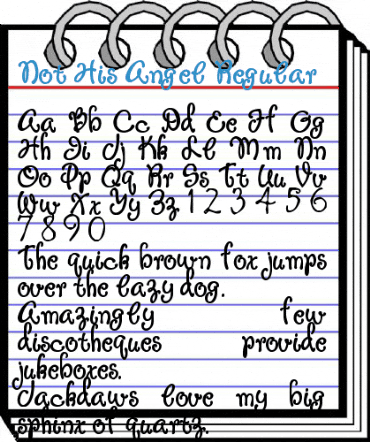 Not His Angel Regular
Aa Bb Cc Dd Ee Ff Gg
Hh Ii Jj Kk Ll Mm Nn
Oo Pp Qq Rr Ss Tt Uu Vv
Ww Xx Yy Zz 1 2 3 4 5 6
7 8 9 0
The quick brown fox jumps
over the lazy dog.
Amazingly few
discotheques provide
jukeboxes.
Jackdaws love my big
sphinx of quartz.